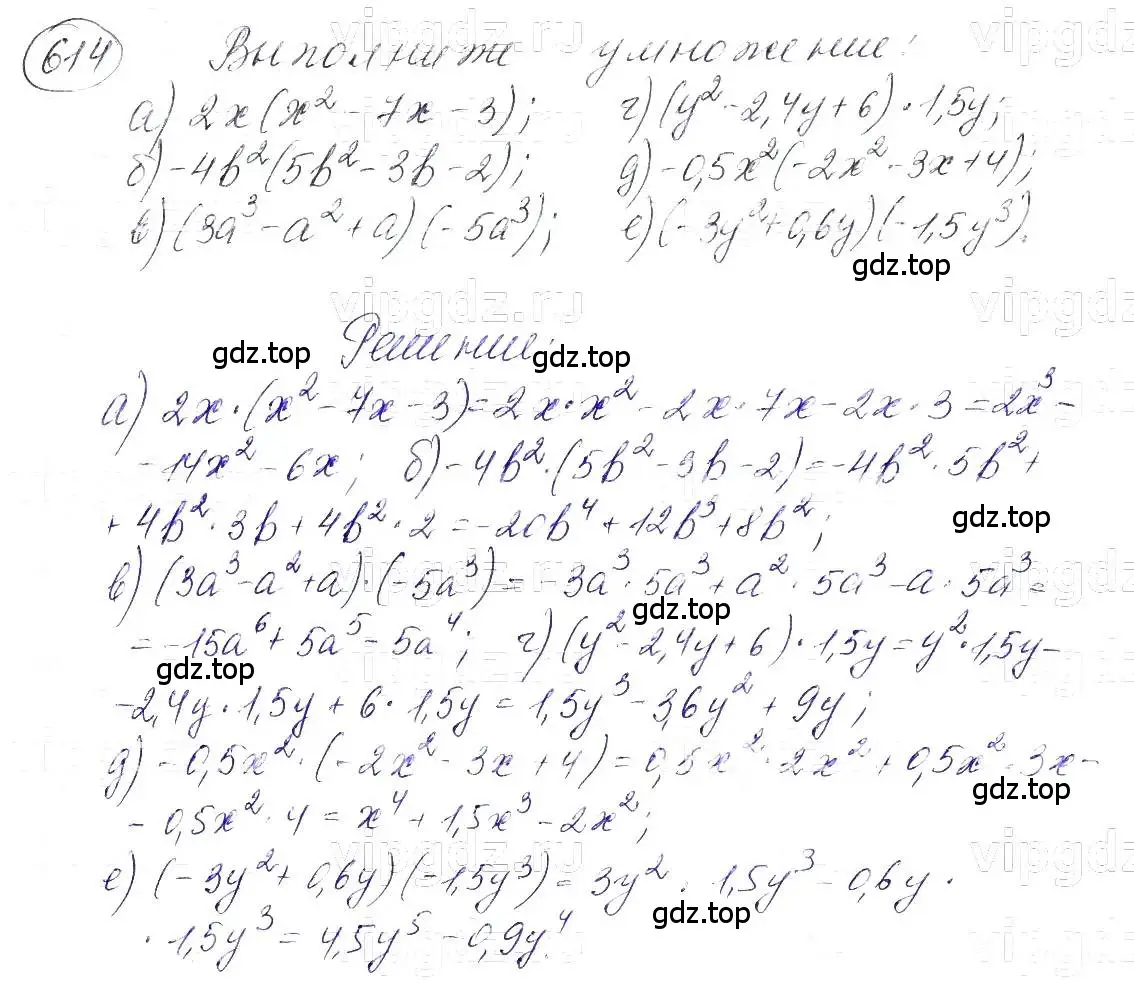 614 Выполните умножение:
а) 2x(x² - 7x - 3); г) (y² - 2,4y + 6) · 1,5y;
б) -4b²(5b² - 3b - 2); д) -0,5x²(-2x² - 3x + 4);
в) (3a³ - a² + a)(-5a³); е) (-3y² + 0,6y)(-1,5y³).
Решение:
а) 2x · (x² - 7x - 3) = 2x · x² - 2x · 7x - 2x · 3 = 2x³ -
- 14x² - 6x; б) -4b² · (5b² - 3b - 2) = -4b² · 5b² +
+ 4b² · 3b + 4b² · 2 = -20b⁴ + 12b³ + 8b²;
в) (3a³ - a² + a) · (-5a³) = -3a³ · 5a³ + a² · 5a³ - a · 5a³ =
= -15a⁶ + 5a⁵ - 5a⁴; г) (y² - 2,4y + 6) · 1,5y = y² · 1,5y -
- 2,4y · 1,5y + 6 · 1,5y = 1,5y³ - 3,6y² + 9y;
д) -0,5x² · (-2x² - 3x + 4) = 0,5x² · 2x² + 0,5x² · 3x -
- 0,5x² · 4 = x⁴ + 1,5x³ - 2x²;
е) (-3y² + 0,6y)(-1,5y³) = 3y² · 1,5y³ - 0,6y ·
· 1,5y³ = 4,5y⁵ - 0,9y⁴.